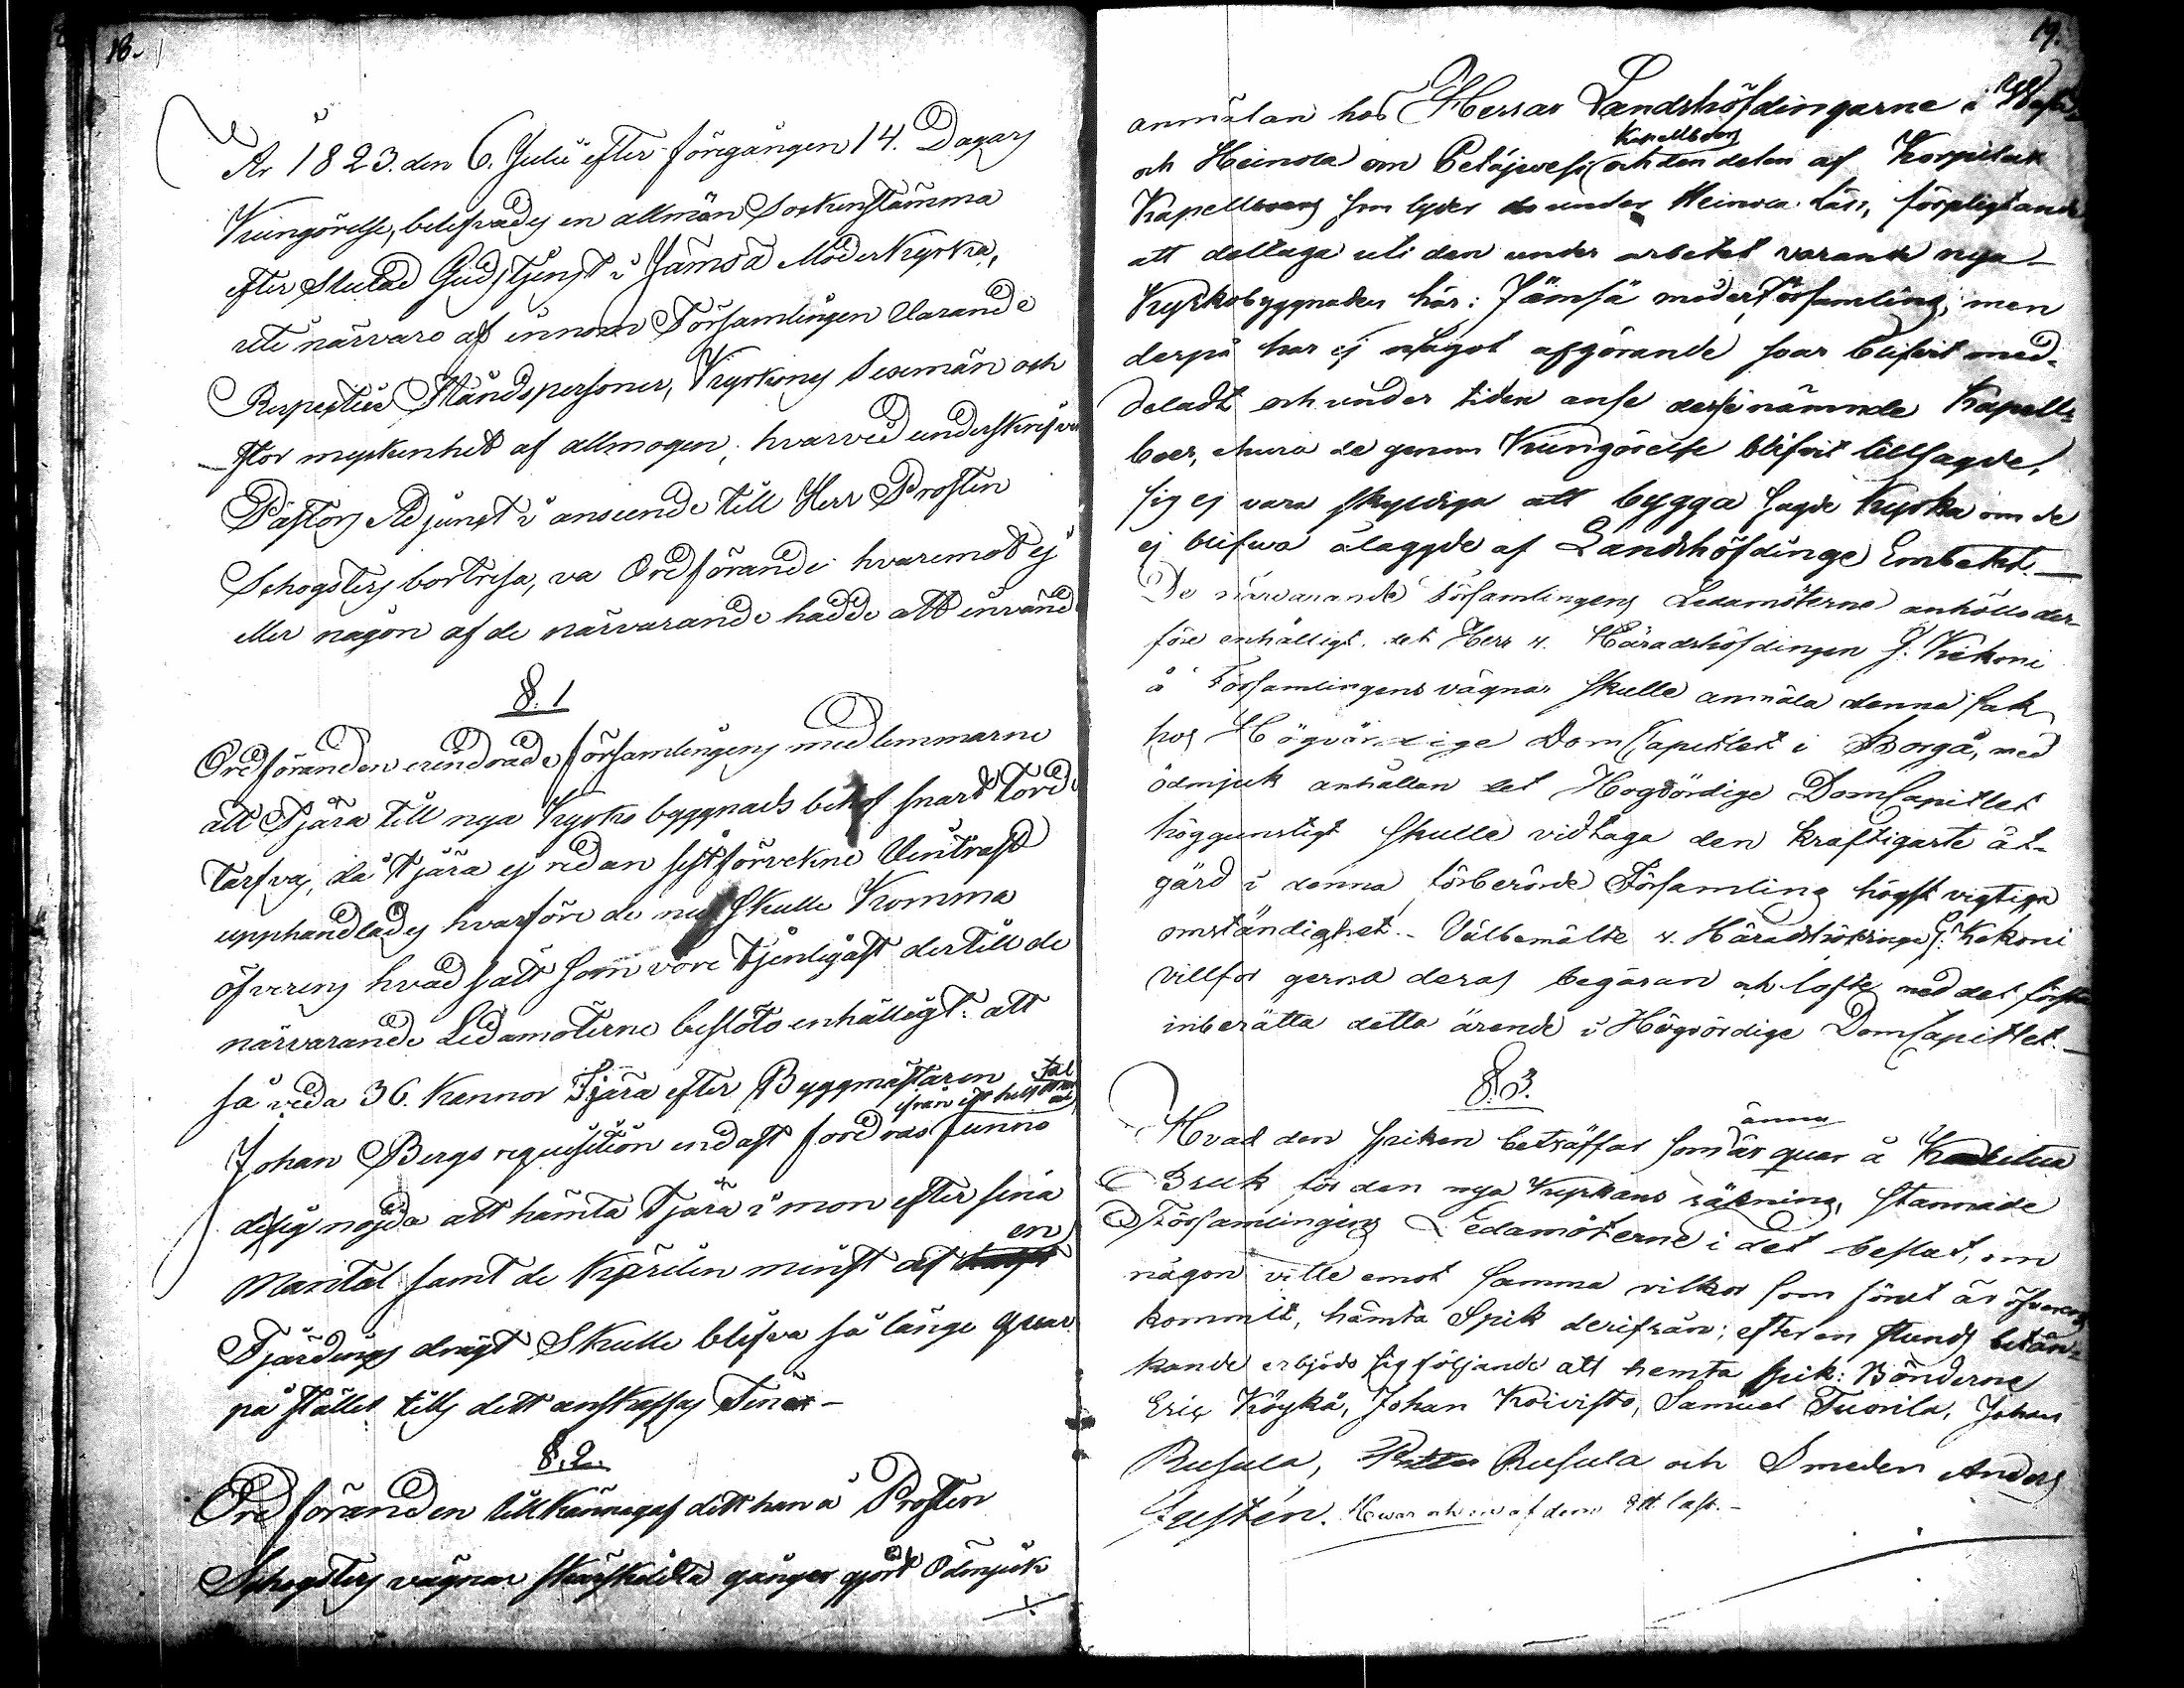 18.
År 1823. den 6. Julii efter föregången 14. Dagars
Kungörelse, blefvade en allmän Sockenstämma
efter Slutad Gudstjenst i Jämsä Moderkyrka,
uti närvaro af innom Församlingen Varande
Respective Ståndspersoner, Kyrkones Sexmän och
stor myckenhet af allmogen, hvarvid underskrifven
Pastors Adjunct i anseende till Herr Prosten
Schogsters bortresa, va Ordförande hvaremot ej
eller någon af de närvarande hadde att invända
§. 1
Ordföranden erindrade församlingens medlemmarne
att Tjära till nya Kyrko byggnads behof snart torde
tarfvas, då Tjära ej redan sistförvekne Vinter
upphandlades hvarföre de nu Skulle Komma
öfverens hvad sätt som vore tjenligast dertill de
närvarande Ledamöterne beslöto enhälligt: att
så vida 36. Kannor Tjära efter Byggmästaren
Johan Bergs requisition endast fordras funno
de sig nöjda att hämta Tjära i mon efter sina
en
Mantal samt de Kärilen minst af
Fjerdings drygt Skulle blifva så länge qvar
på stället tills dett anskaffas Tinar -
§. 2.
Ordföranden tillkännagaf dett han å Prosten
Schogsters vägnar särskildta gånger gjort Ödmjuk
19.
anmälan hos Herrar Landshöfdingarne i Wasa
Kapellboers
och Heinola om Petäjwesi och den delen af Korpilax
Kapell som lyder under Heinola Län, förpligtande
att deltaga uti den under arbetet varande nya
Kyrkobyggnaden här i Jämsä moder Församling; men
derpå har ej något afgörande svar blifvit med-
deladt och under tiden anse dessenämnde Kapell-
boer, ehura de genom Kungörelse blifvit tillsagde,
sig ej vara skyldiga att bygga sagde Kyrka om de
ej blifwa ålaggde af Landshöfdinge Embetet. —
De närvarande Församlingens Ledamöterne anhöllo der-
före enhälligt, det Herr v. Häradshöfdingen J. Kekoni
å Församlingens vägnar skulle anmäla denna sak
hos Högvördige DomCapitlet i Borgå, med
ödmjuk anhållan det Högvördige DomCapitlet
höggunstigt skulle vidtaga den kraftigaste åt-
gärd i denna förberörde Församling högst vigtiga
omständighet. - Välbemälte v. Häradshöfdinge J. Kekoni
villfor gerna deras begäran och lofte med det första
inberätta detta ärende i Högvördige DomCapitlet. —
§. 3.
änna
Hvad den spiken beträffar som är quar å
Bruk för den nya Kyrkans räkning, stannade
Församlingens Ledamöterne i det beslut, om
någon ville emot samma vilkor som förut är öfverens
kommit, hämta Spik derifrån; efter en stunds betän-
kande erbjöds sig följande att hemta spik: Bönderne
Eric Köykä, Johan Koivisto, Samuel Tuorila, Johan
Rusula, Rusula och Smeden Anders
Justén. Hwar och en af dem ett lass. -